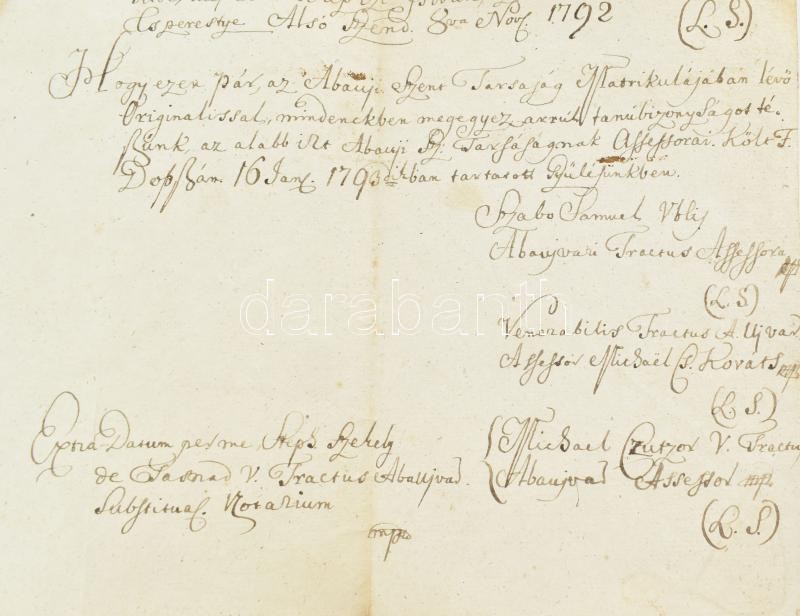 Esperestje Alsó Szend. 8va Novʃ. 1792 (L. S.)
Hogy ezen pár, az Abauji Szent Tarsaság Matrikulájában lévö
Originalissal, mindenekben megegyez arrúl tanúbizonyságot té-
szünk, az alabb irt Abauji Sz. Tarsáságnak Assessorai. Költ F.
Dopszán. 16 Janʃ. 1793dikban tartatott Gyülésünkben.
Szabo Samuel Vblis
Abaujvari Tractus Assessora
mp
(L. S)
darabanth
Venerabilis Tractus A. Ujvar
Assessor Michaël Cs. Kováts mp.
(L. S.)
Extra-Datum per me, Steph. Szekely
de Tasnad V. Tractus Abaujvar.
Substitua. Notarium
mp
Michael Czutzor V. Tractu
Abaujvar Assessor mp.
(L. S.)